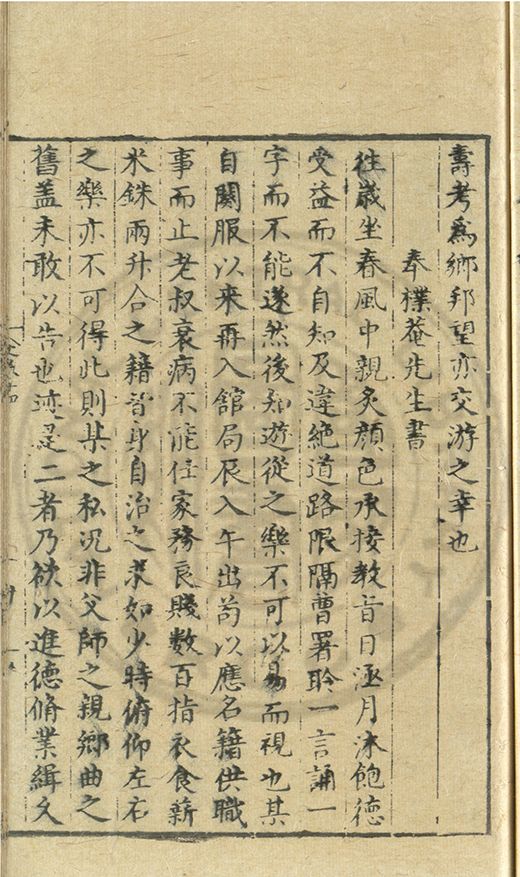 壽考爲鄉邦望亦交游之幸也
奉樸菴先生書
往歲坐春風中親炙顏色承接教旨日涵月沐飽德
受益而不自知及違絶道路限隔曹署聆一言誦一
字而不能遂然後知遊從之樂不可以易而視也某
自闋服以來再入舘局辰入午出苟以應名籍供職
事而止老叔衰病不能任家務良賤數百指衣食薪
米銖兩升合之籍皆身自治之求如少時俯仰左右
之樂亦不可得此則某之私况非父師之親鄉曲之
舊盖未敢以告也迹是二者乃欲以進德脩業緝文